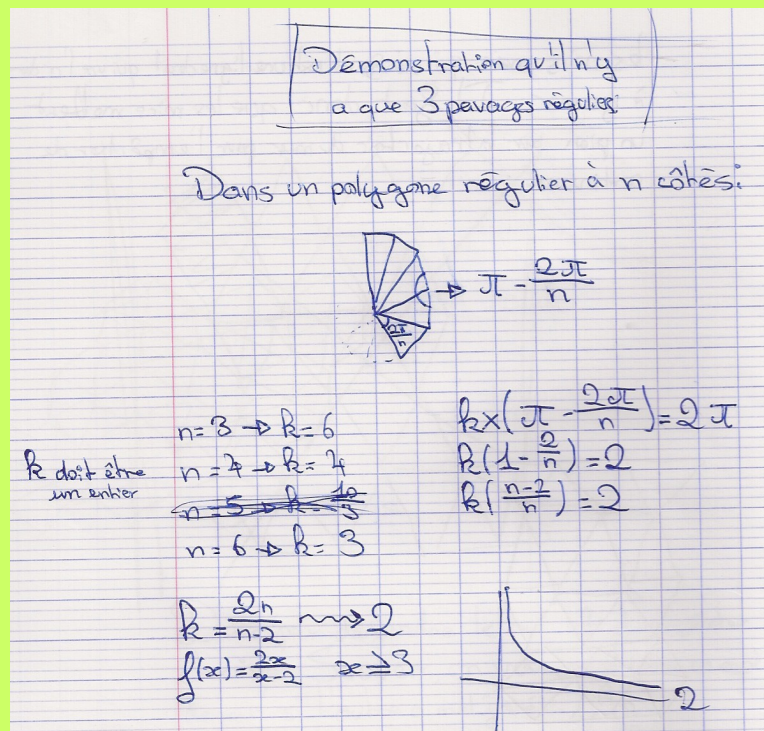 Démonstration qu'il n'y
a que 3 pavages réguliers
Dans un polygone régulier à n côtés:
→ π - 2π/n
2π/n
n=3 → k=6
k doit être
un entier
n=4 → k=4
n=5 → k=10/3
n=6 → k=3
k×(π - 2π/n)=2π
k(1-2/n)=2
k((n-2)/n)=2
k=2n/(n-2) ⟿ 2
f(x)=2x/(x-2) x≥3
2